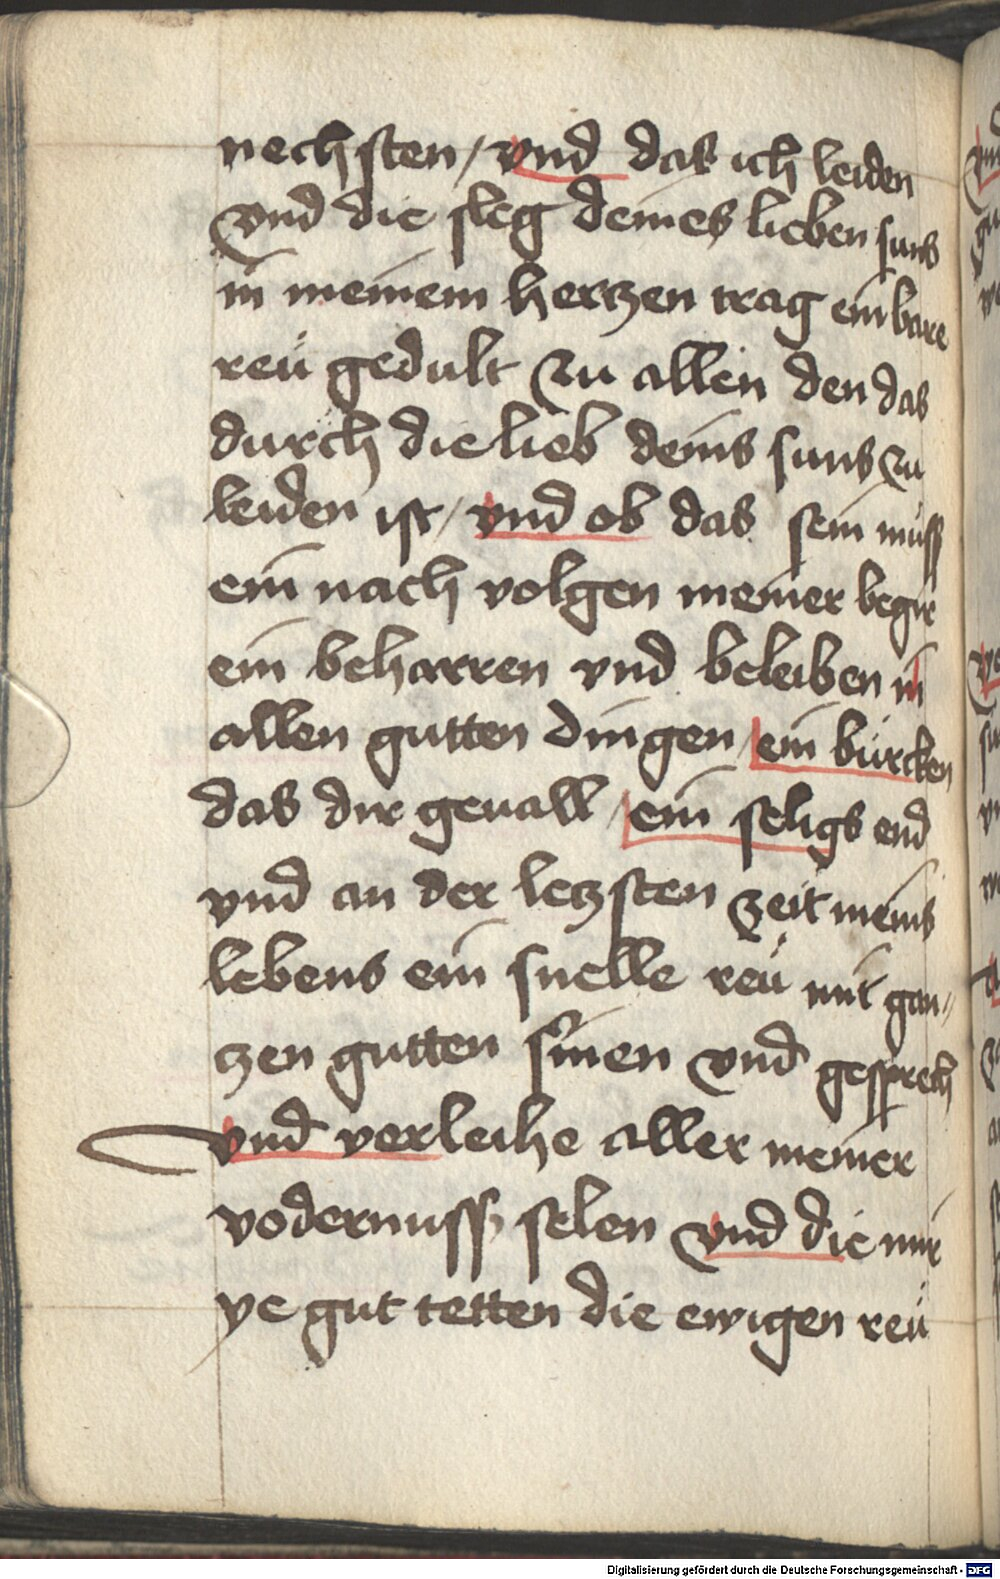 nechsten / vnd das ich leiden
vnd die sleg deines lieben suns
in meinem hertzen trag ein bare
reü gedult zu allen den das
durch die lieb deins suns zu
leiden ist / vnd ob das sein müss
ein nach volgen meiner begir
ein beharren vnd beleiben in
allen gutten dingen / ein bürcken
das dir geuall / ein seligs end
vnd an der letzsten zeit meins
lebens ein snelle reü mit gan〃
tzen gutten sinen vnd gesprech
vnd verleihe aller meiner
vodernuss selen vnd die mir
ye gut tetten die ewigen reü
Digitalisierung gefördert durch die Deutsche Forschungsgemeinschaft - DFG